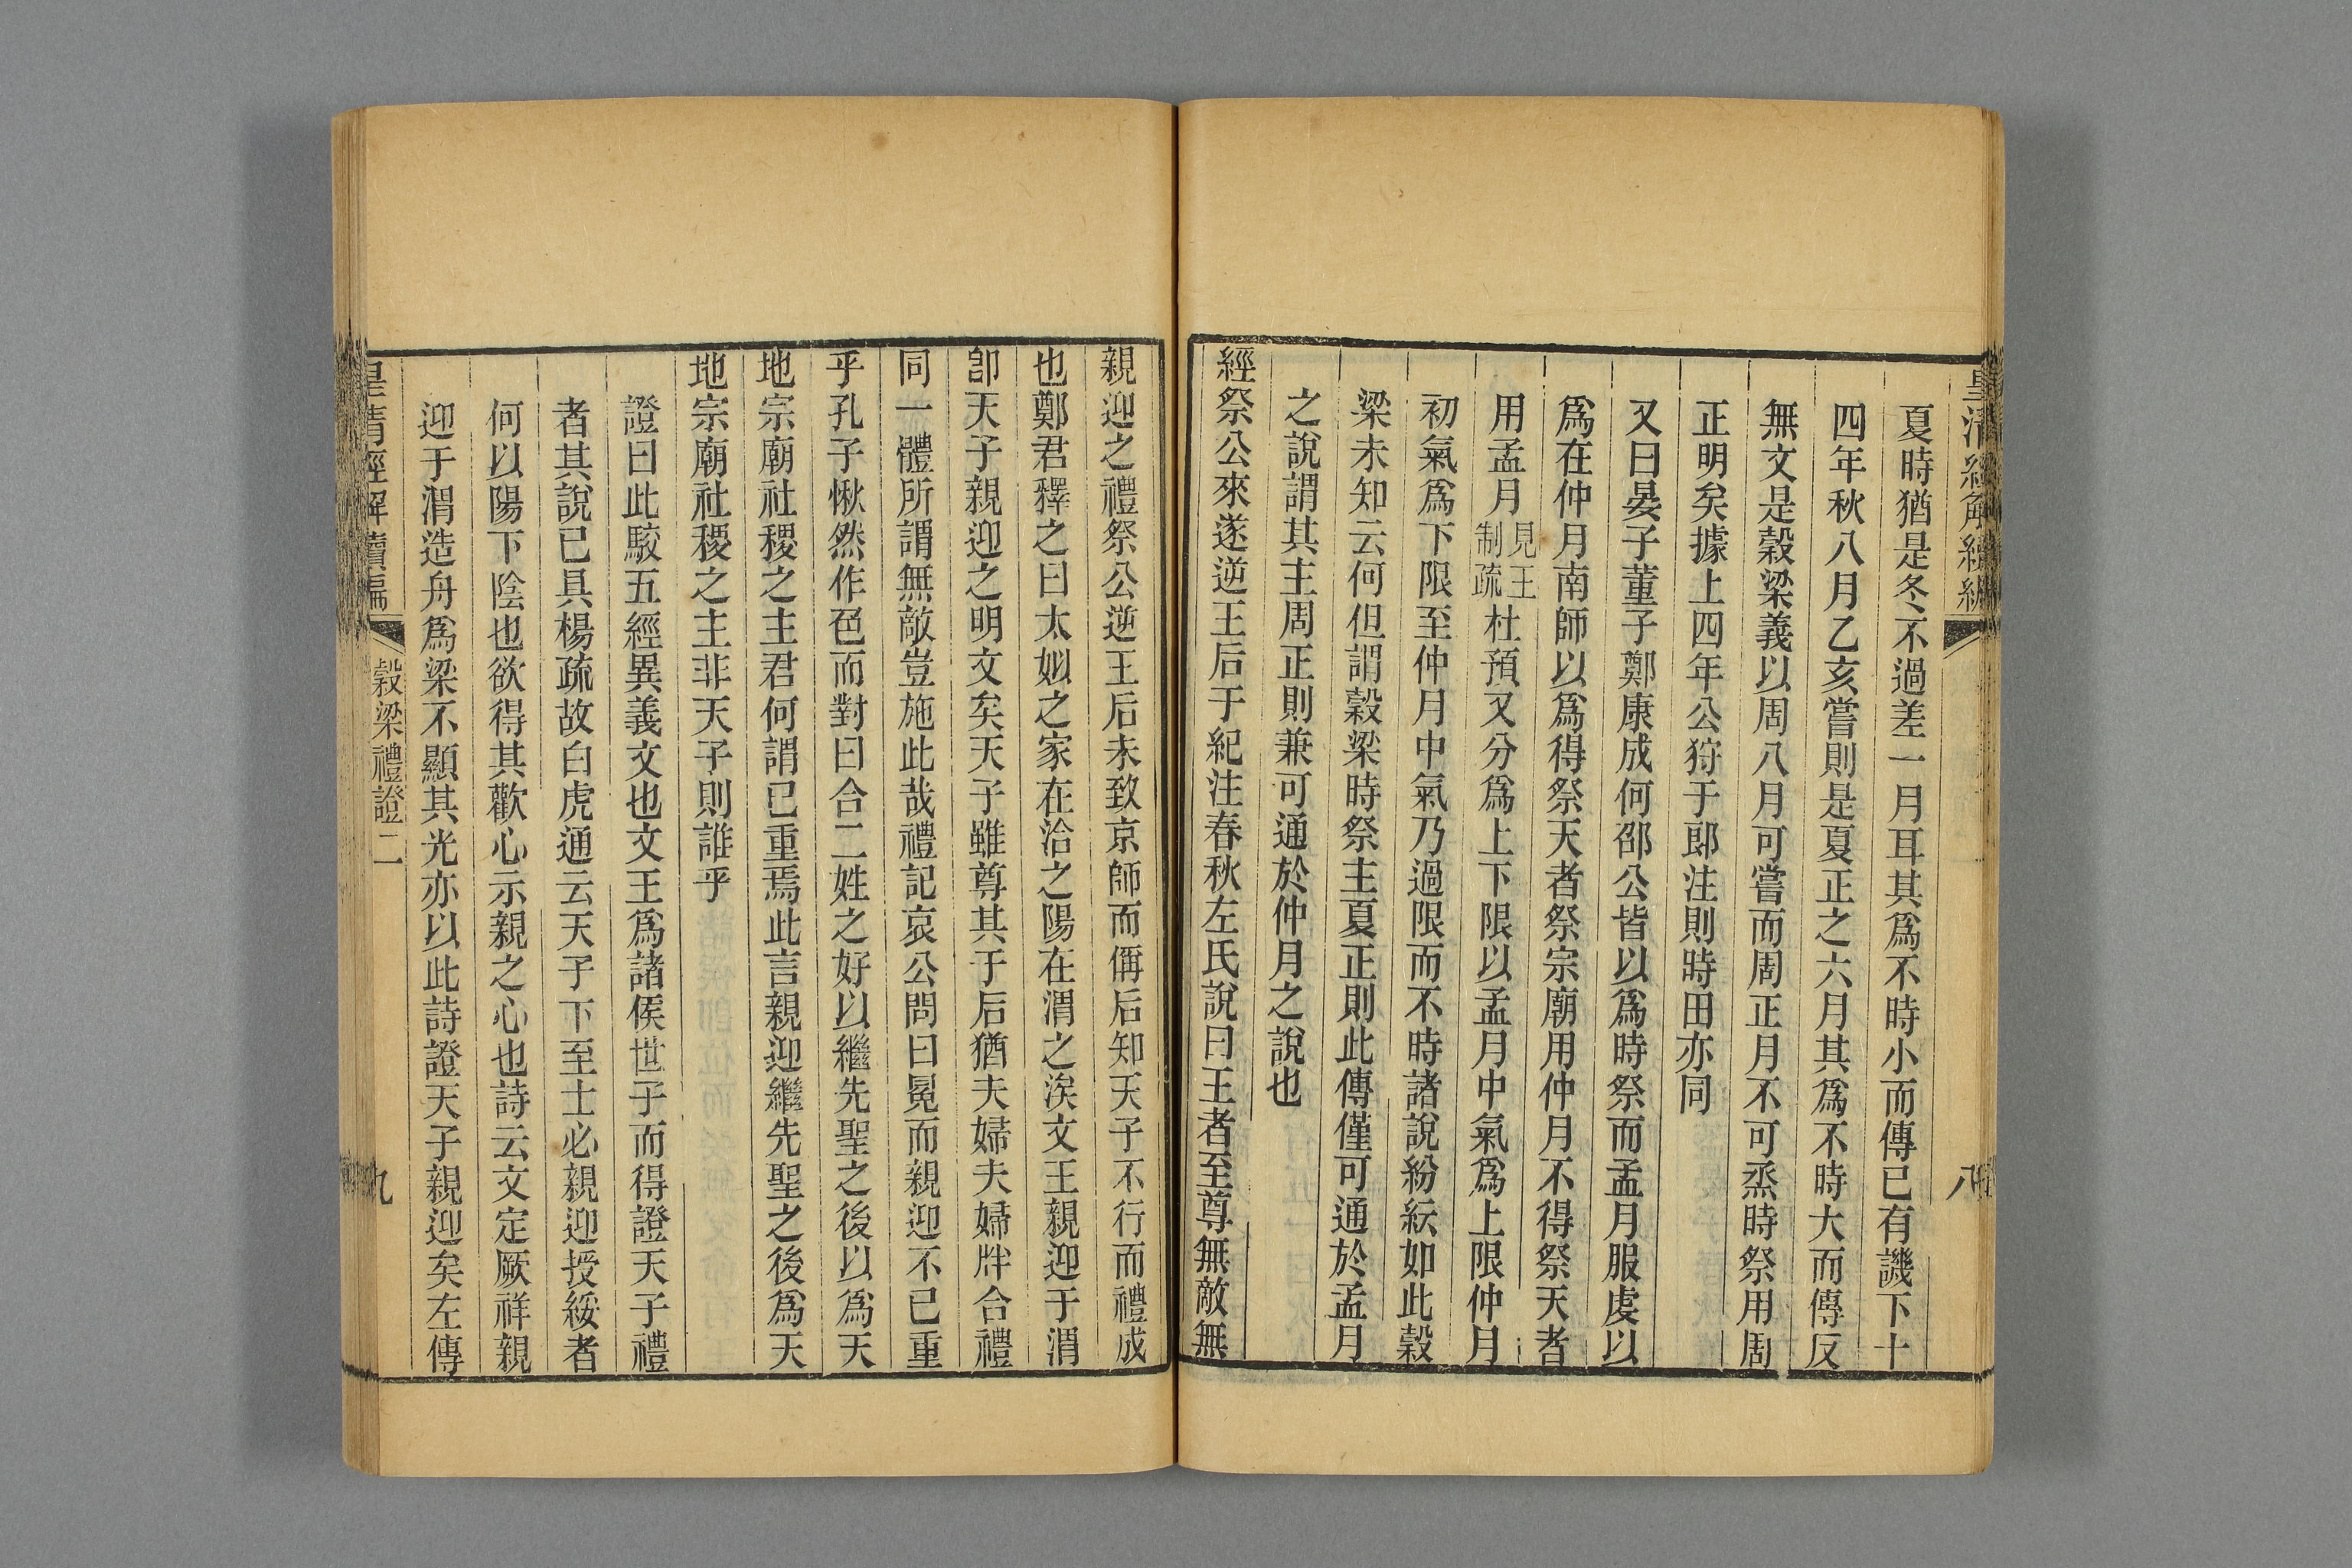 皇清經解續編
八
夏時猶是冬不過差一月耳其爲不時小而傳已有譏下十
四年秋八月乙亥嘗則是夏正之六月其爲不時大而傳反
無文是穀梁義以周八月可嘗而周正月不可烝時祭用周
正明矣據上四年公狩于郎注則時田亦同
又曰晏子董子鄭康成何邵公皆以爲時祭而孟月服虔以
爲在仲月南師以爲得祭天者祭宗廟用仲月不得祭天者
用孟月見王制疏杜預又分爲上下限以孟月中氣爲上限仲月
初氣爲下限至仲月中氣乃過限而不時諸說紛紜如此穀
梁未知云何但謂穀梁時祭主夏正則此傳僅可通於孟月
之說謂其主周正則兼可通於仲月之說也
經祭公來遂逆王后于紀注春秋左氏說曰王者至尊無敵無
親迎之禮祭公逆王后未致京師而偁后知天子不行而禮成
也鄭君釋之曰太姒之家在洽之陽在渭之涘文王親迎于渭
卽天子親迎之明文矣天子雖尊其于后猶夫婦夫婦牉合禮
同一體所謂無敵豈施此哉禮記哀公問曰冕而親迎不已重
乎孔子愀然作色而對曰合二姓之好以繼先聖之後以爲天
地宗廟社稷之主君何謂已重焉此言親迎繼先聖之後爲天
地宗廟社稷之主非天子則誰乎
證曰此駮五經異義文也文王爲諸侯世子而得證天子禮
者其說已具楊疏故白虎通云天子下至士必親迎授綏者
何以陽下陰也欲得其歡心示親之心也詩云文定厥祥親
迎于渭造舟爲梁不顯其光亦以此詩證天子親迎矣左傳
皇清經解續編
穀梁禮證二
九